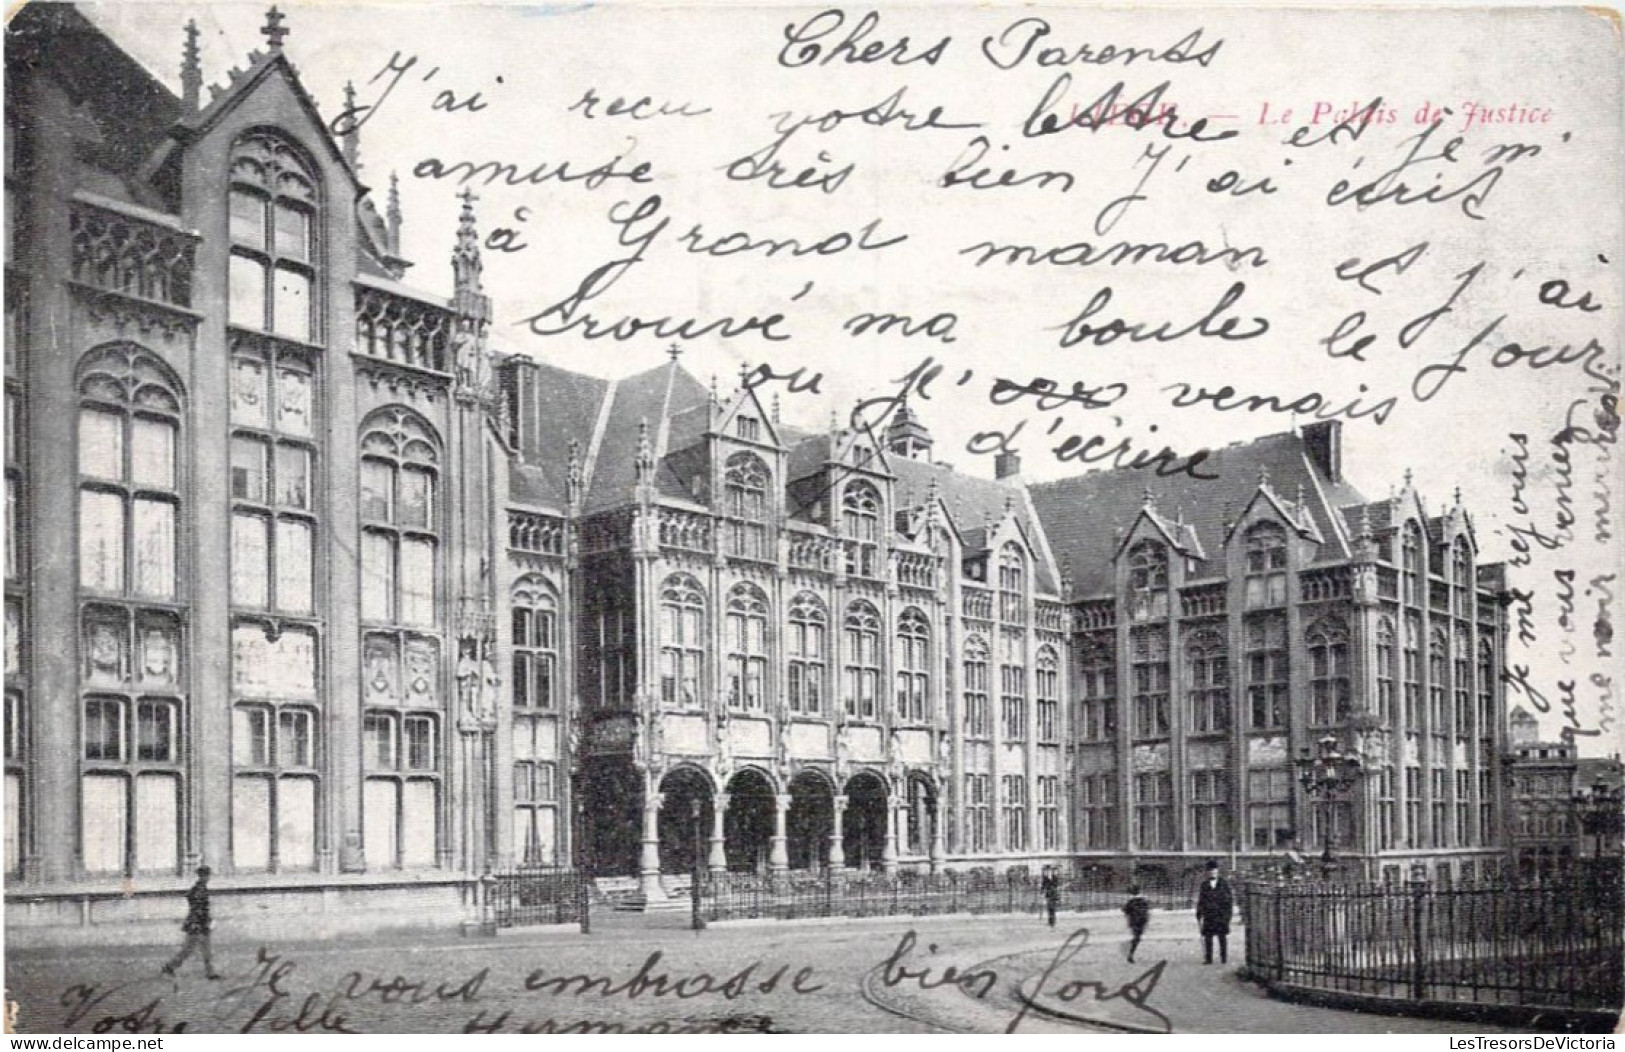 Chers Parents
LIEGE. — Le Palais de Justice
J'ai recu votre lettre et je m'
amuse très bien J'ai écrit
à Grand maman et j'ai
trouvé ma boule le jour
ou je venais
d'ècrire
Je me réjouis
que vous venier
me voir mercredi.
Je vous embrasse bien fort
Votre fille Hermance
www.lestresorsdevictoria.com
LesTresorsDeVictoria